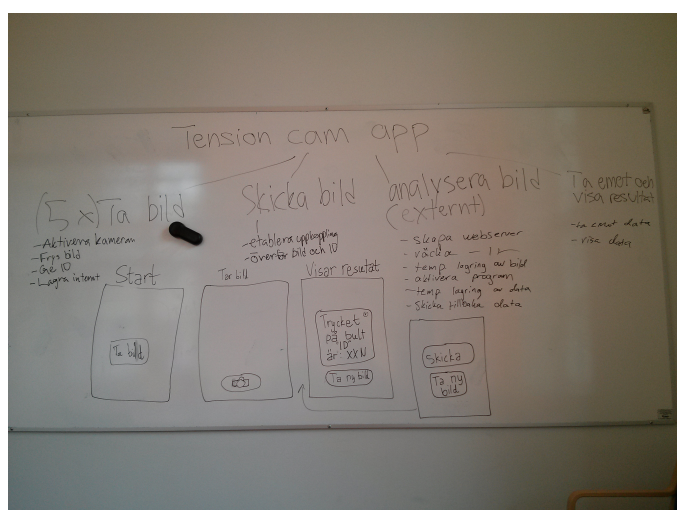 Tension cam app
(5x) Ta bild
- Aktivera kameran
- Frys bild
- Ge ID
- Lagra internt
Skicka bild
- etablera uppkoppling
- överför bild och ID
analysera bild
(externt)
- skapa webserver
- väcka - " -
- temp lagring av bild
- aktivera program
- temp. lagring av data
- Skicka tillbaka data
Ta emot och
visa resultat
- ta emot data
- visa data
Start
Ta bild
Tar bild
Visar resultat
Trycket
på bult
"ID"
är: XXN
Ta ny bild
Skicka
Ta ny
bild